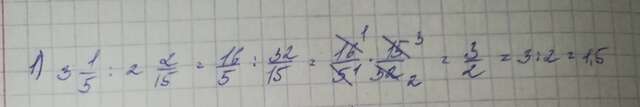 1) 3 1/5 : 2 2/15 = 16/5 : 32/15 = 16/5 · 15/32 = 3/2 = 3:2 = 1,5